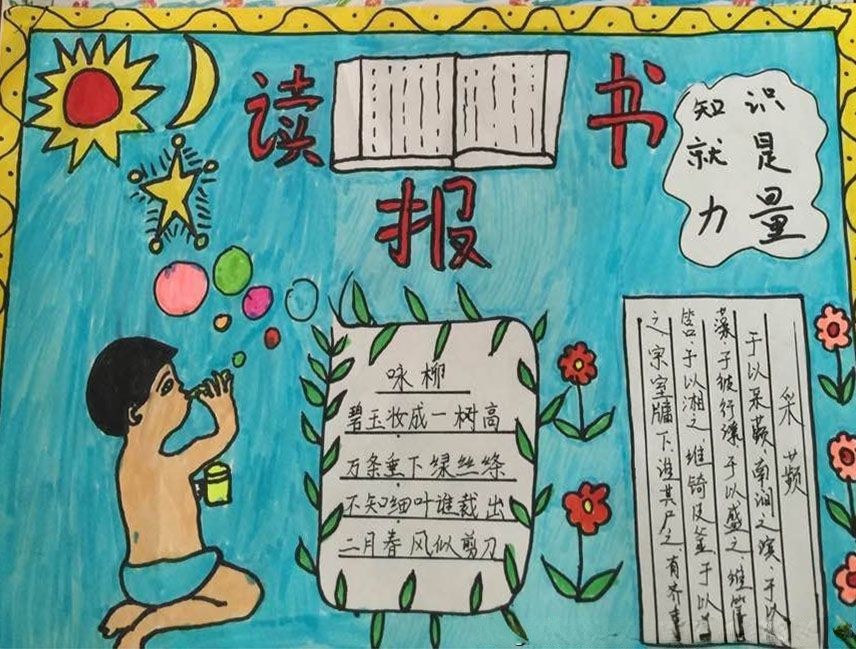 读 书
报
知 识
就 是
力 量
咏 柳
碧玉妆成一树高
万条垂下绿丝绦
不知细叶谁裁出
二月春风似剪刀
采𬞟
于以采𬞟.南涧之滨.于以
藻.于彼行潦.于以盛之.维筐
筥.于以湘之.维锜及釜.于以
之.宗室牖下.谁其尸之.有齐季